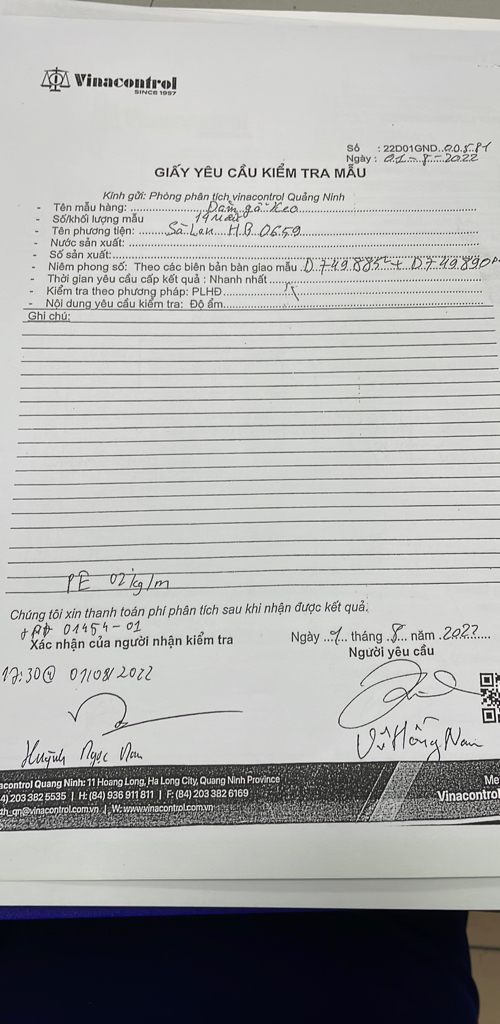 Vinacontrol
SINCE 1957
Số : 22D01GND..00581
Ngày : 01-8-2022
GIẤY YÊU CẦU KIỂM TRA MẪU
Kính gửi: Phòng phân tích vinacontrol Quảng Ninh
- Tên mẫu hàng: Dăm gỗ keo
- Số/khối lượng mẫu 14 mẫu
- Tên phương tiện: Sà Lan H.B.0659
- Nước sản xuất:
- Số sản xuất:
- Niêm phong số: Theo các biên bản bàn giao mẫu D749885 + D749890
- Thời gian yêu cầu cấp kết quả : Nhanh nhất
- Kiểm tra theo phương pháp: PLHĐ
- Nội dung yêu cầu kiểm tra: Độ ẩm
Ghi chú:
PE 02 kg/m
Chúng tôi xin thanh toán phí phân tích sau khi nhận được kết quả.
01454-01
Xác nhận của người nhận kiểm tra
Ngày 1 tháng 8 năm 2022
Người yêu cầu
17:30 01/08/2022
Huỳnh Ngọc
Vũ Hồng Nam
acontrol Quang Ninh: 11 Hoang Long, Ha Long City, Quang Ninh Province
4) 203 382 5535 | H: (84) 936 911 811 | F: (84) 203 382 6169
th_qn@vinacontrol.com.vn | W: www.vinacontrol.com.vn
Me
Vinacontrol